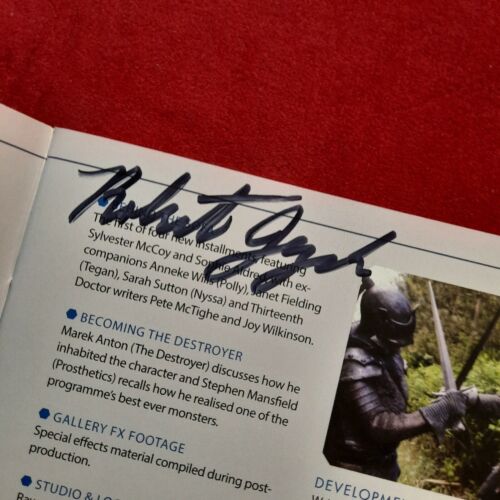 The first of four new installments, featuring
Sylvester McCoy and Sophie Aldred with ex-
companions Anneke Wills (Polly), Janet Fielding
(Tegan), Sarah Sutton (Nyssa) and Thirteenth
Doctor writers Pete McTighe and Joy Wilkinson.
BECOMING THE DESTROYER
Marek Anton (The Destroyer) discusses how he
inhabited the character and Stephen Mansfield
(Prosthetics) recalls how he realised one of the
programme's best ever monsters.
GALLERY FX FOOTAGE
Special effects material compiled during post-
production.
STUDIO & LO
DEVELOPMEN